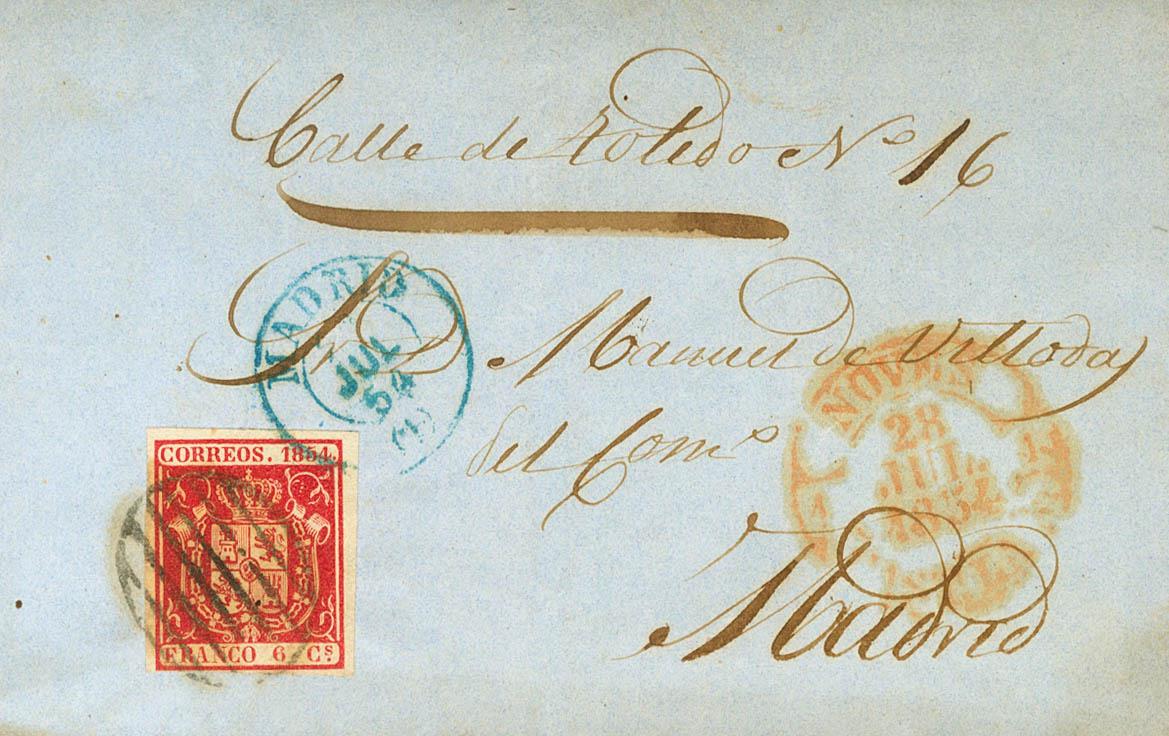 Calle de Toledo Nº 16
MADRID
JUL
54
(1)
Sr D Manuel de Villoda
del Comº
28
JUL
1854
CORREOS. 1854.
FRANCO 6 Cs.
Madrid